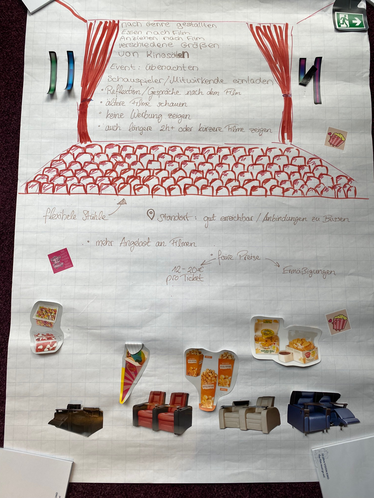 nach Genre gestalten
Essen nach Film
Anziehen nach Film
verschiedene Größen
von Kinosälen
Event: übernachten
Schauspieler/Mitwirkende einladen
• Reflektion/Gespräche nach dem Film
• ältere Filme schauen
• keine Werbung zeigen
• auch längere 2h+ oder kürzere Filme zeigen
flexible Stühle
Standort: gut erreichbar/Anbindungen zu Bussen
• mehr Angebot an Filmen
• faire Preise
12-20€
pro Ticket
Ermäßigungen